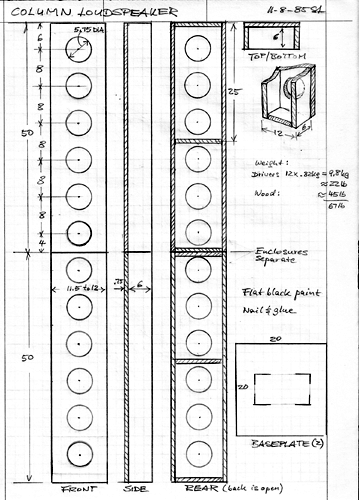 COLUMN LOUDSPEAKER
11-8-85 SL
5.75 DIA
6
8
8
8
8
8
4
50
50
11.5 to 12
.75
6
25
6
TOP/BOTTOM
12
8
Weight:
Drivers 12 x .82kg = 9.8kg
≈ 22lb
Wood: ≈ 45lb
67lb
Enclosures
Separate
Flat black paint
Nail & glue
20
20
BASEPLATE (2)
FRONT
SIDE
REAR (back is open)